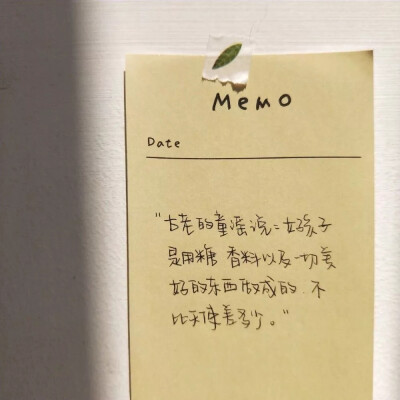 MEMO
Date
"古老的童谣说:好孩子
是用糖 香料以及一切美
好的东西做成的. 不
比天使差多少。"